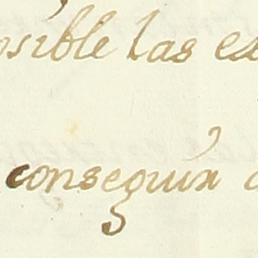 osible las ex
conseguir a